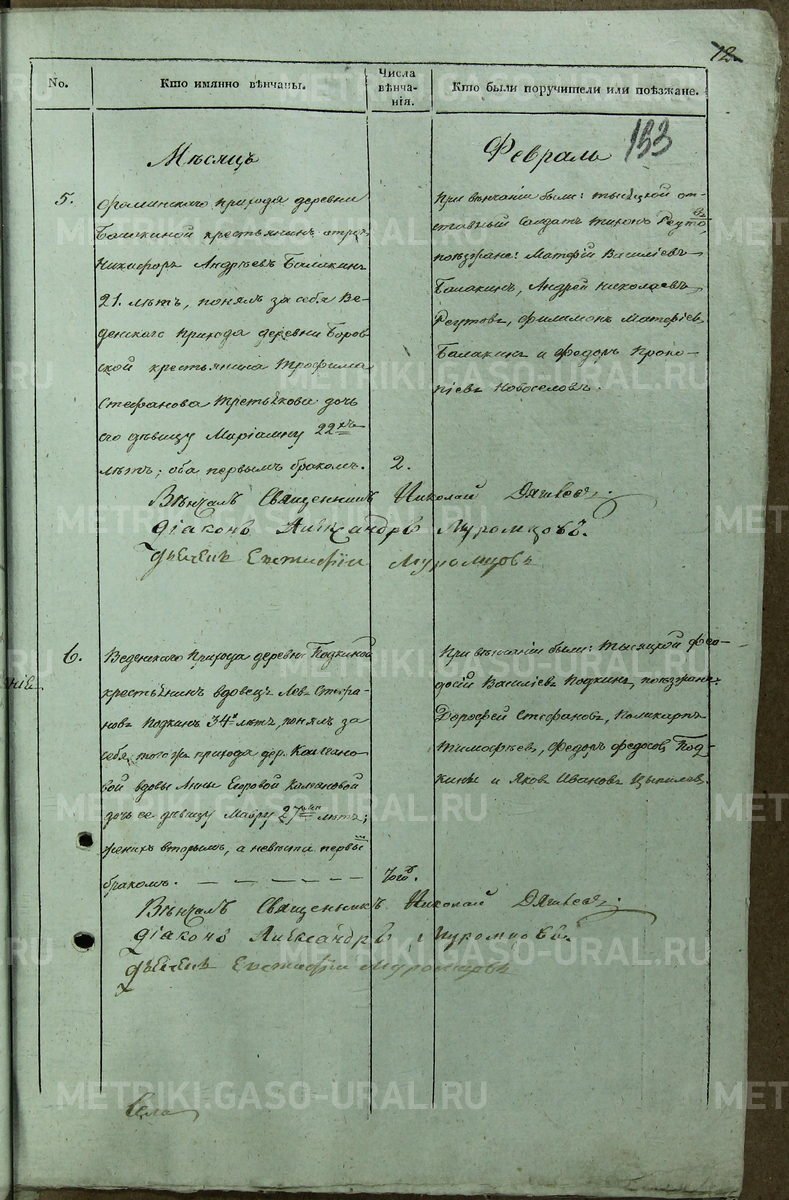 12.
No.
Кто имянно вѣнчаны.
Числа вѣнча-
нія.
Кто были поручители или поѣзжане.
153
Мѣсяцъ
Февраль
5.
Фоминскаго прихода деревни
Балакиной крестьянинъ отрокъ
Никифоръ Андрѣевъ Балакинъ
21. лѣтъ, понялъ за себя Ве-
денскаго прихода деревни Боров-
ской крестьянина Трофима
Стефанова Третьякова дочь
его дѣвицу Маріамну 22хъ
лѣтъ; оба первымъ бракомъ.
2.
При вѣнчаніи были: тысяцкой от-
ставный Солдатъ Тихонъ Реутовъ,
поѣзжане: Матфій Василіевъ
Балакинъ, Андрей Николаевъ
Реутовъ, Филимонъ Матфіевъ
Балакинъ и Федоръ Проко-
піевъ Новоселовъ.
Вѣнчалъ Священникъ Николай
Діаконъ Александръ Муромцовъ.
Дьячекъ Евстафій Муромцовъ
6.
Веденскаго прихода деревни Подкиной
крестьянинъ вдовецъ Левъ Стефа-
новъ Подкинъ 34. лѣтъ, понялъ за
себя тогожъ прихода дер. Колгано-
вой вдовы Анны Егоровой Колгановой
дочь ее дѣвицу Мавру 27ми лѣтъ;
женихъ вторымъ, а невѣста первымъ
бракомъ.
При вѣнчаніи были: Тысяцкой Фео-
досій Василіевъ Подкинъ, поѣзжане:
Дорофей Стефановъ, Поликарпъ
Тимофѣевъ, Федоръ Федосѣевъ Под-
кины и Яковъ Ивановъ Цыпилевъ.
Вѣнчалъ Священникъ Николай
Діаконъ Александръ Муромцовъ.
Дьячекъ Евстафій Муромцовъ
Села
METRIKI.GASO-URAL.RU